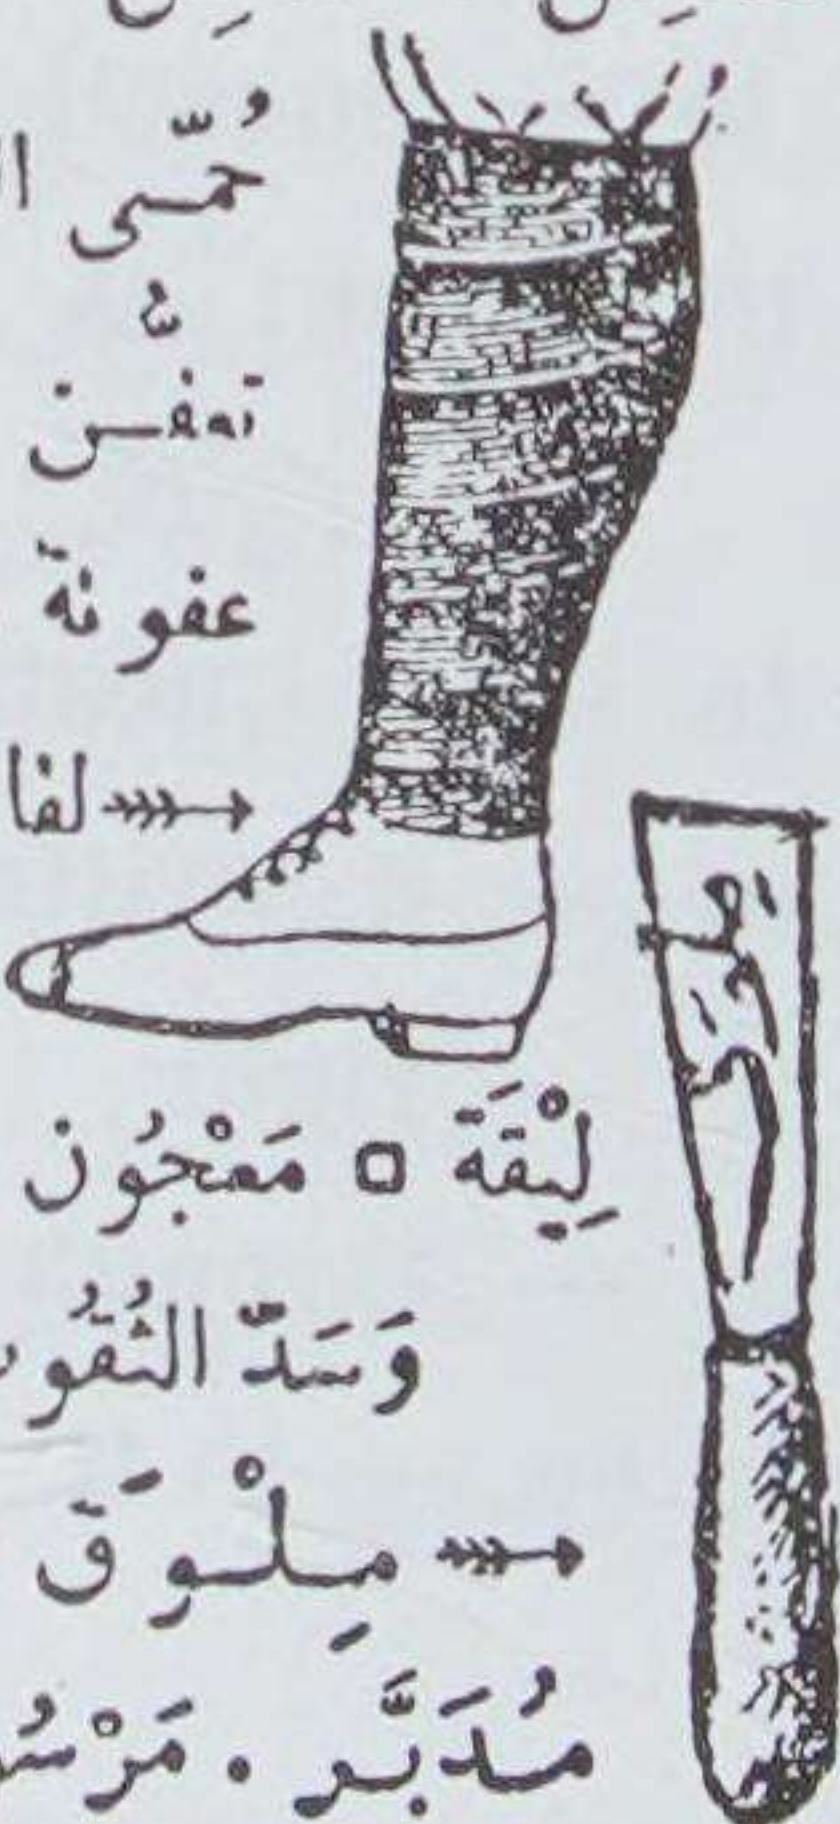 حُمّى
تعفّن
عفونة
لفا
لِيْقَة □ مَعْجُون
وَسَدّ الثُقُو
مِلْوَق
مُدَبَّر . مَرْسُ